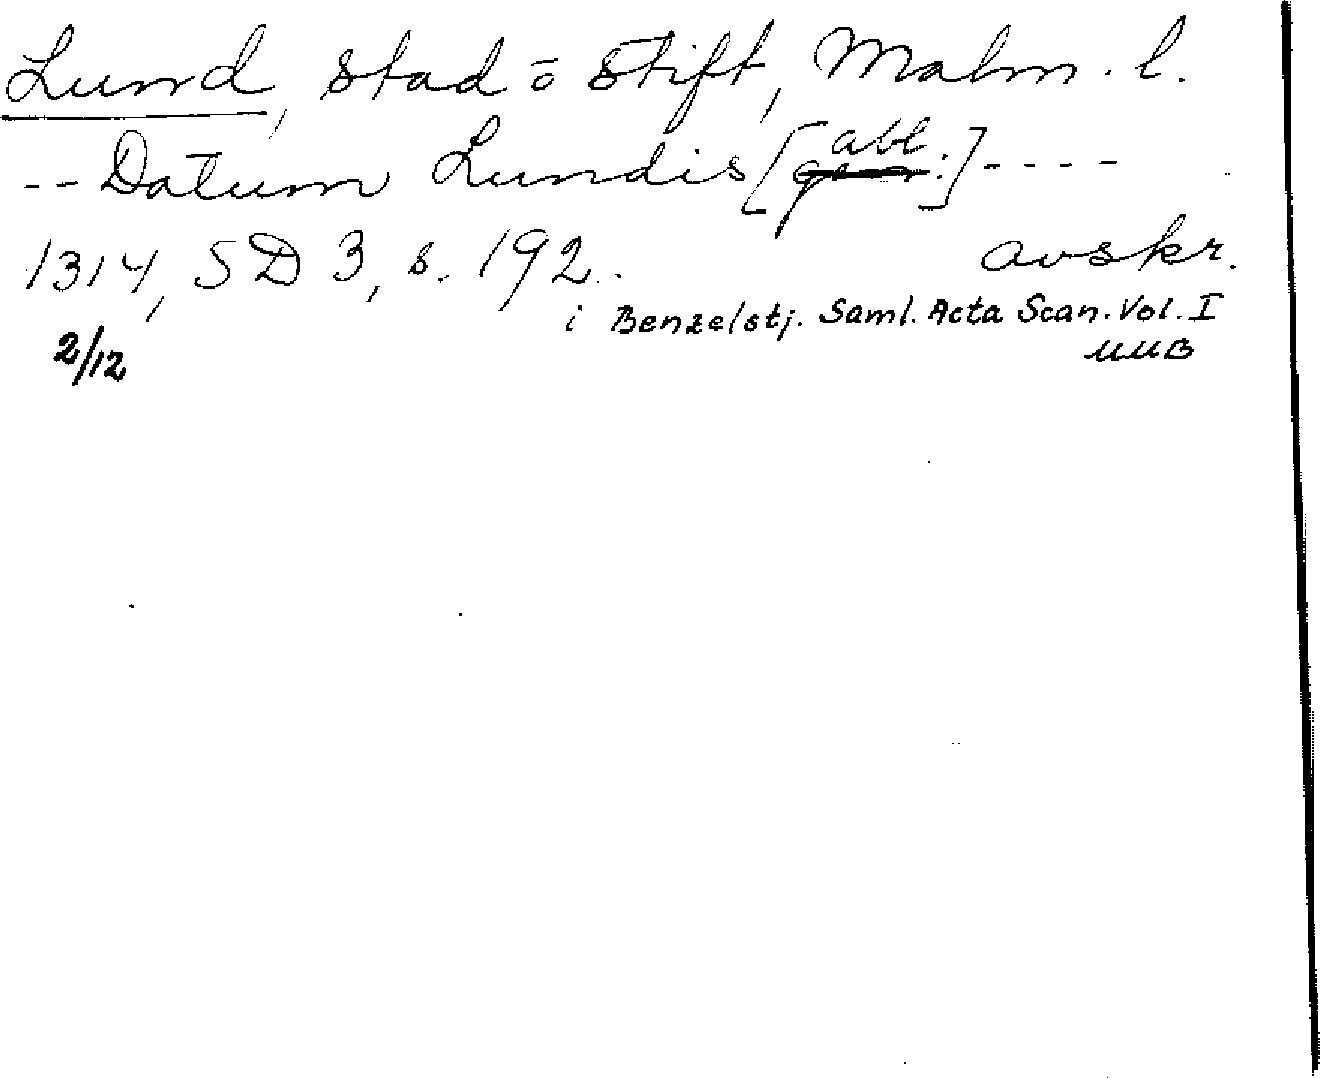 Lund, stad o stift, Malm. l.
-- Datum Lundis [abl.] ----
1314, SD 3, s. 192. avskr.
2/12 i Benzelstj. Saml. Acta Scan. Vol. I
UUB